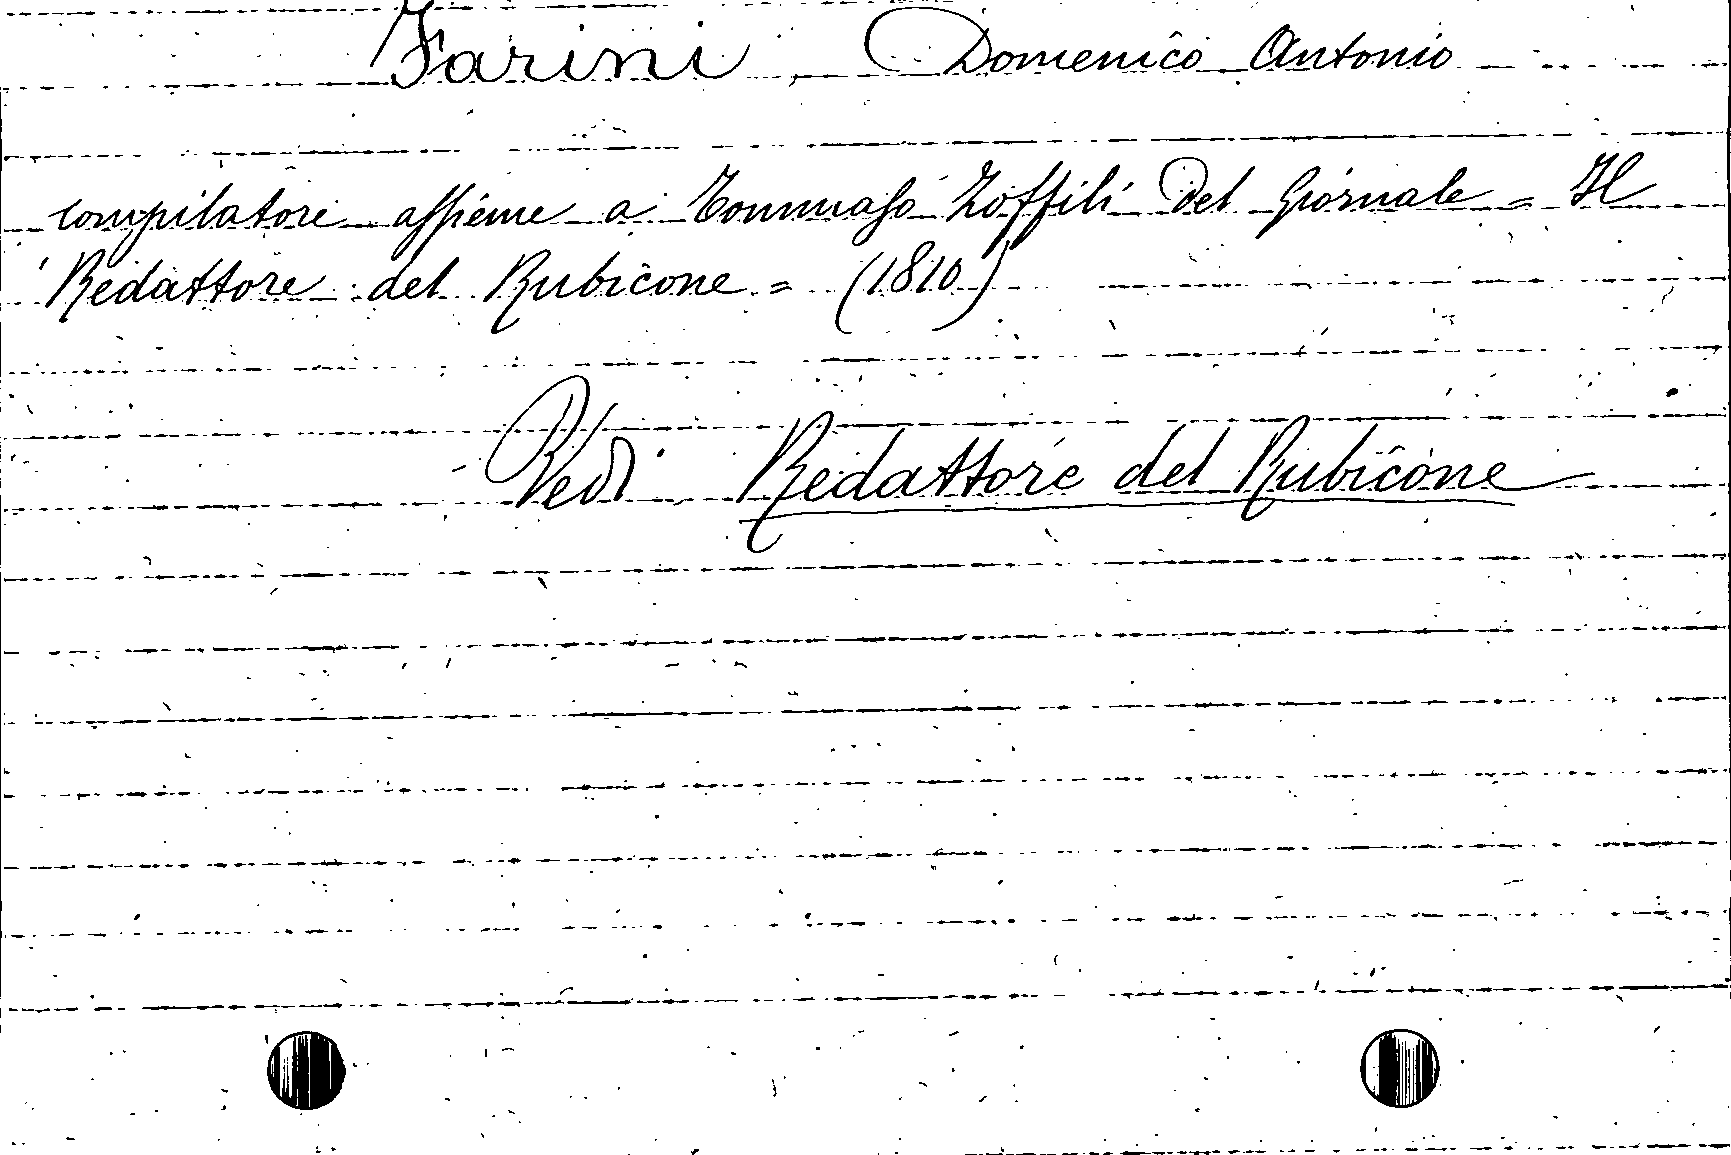 Farini Domenico Antonio
compilatore assieme a Tommaso Zoffili del Giornale = Il
Redattore del Rubicone = (1810)
Vedi Redattore del Rubicone